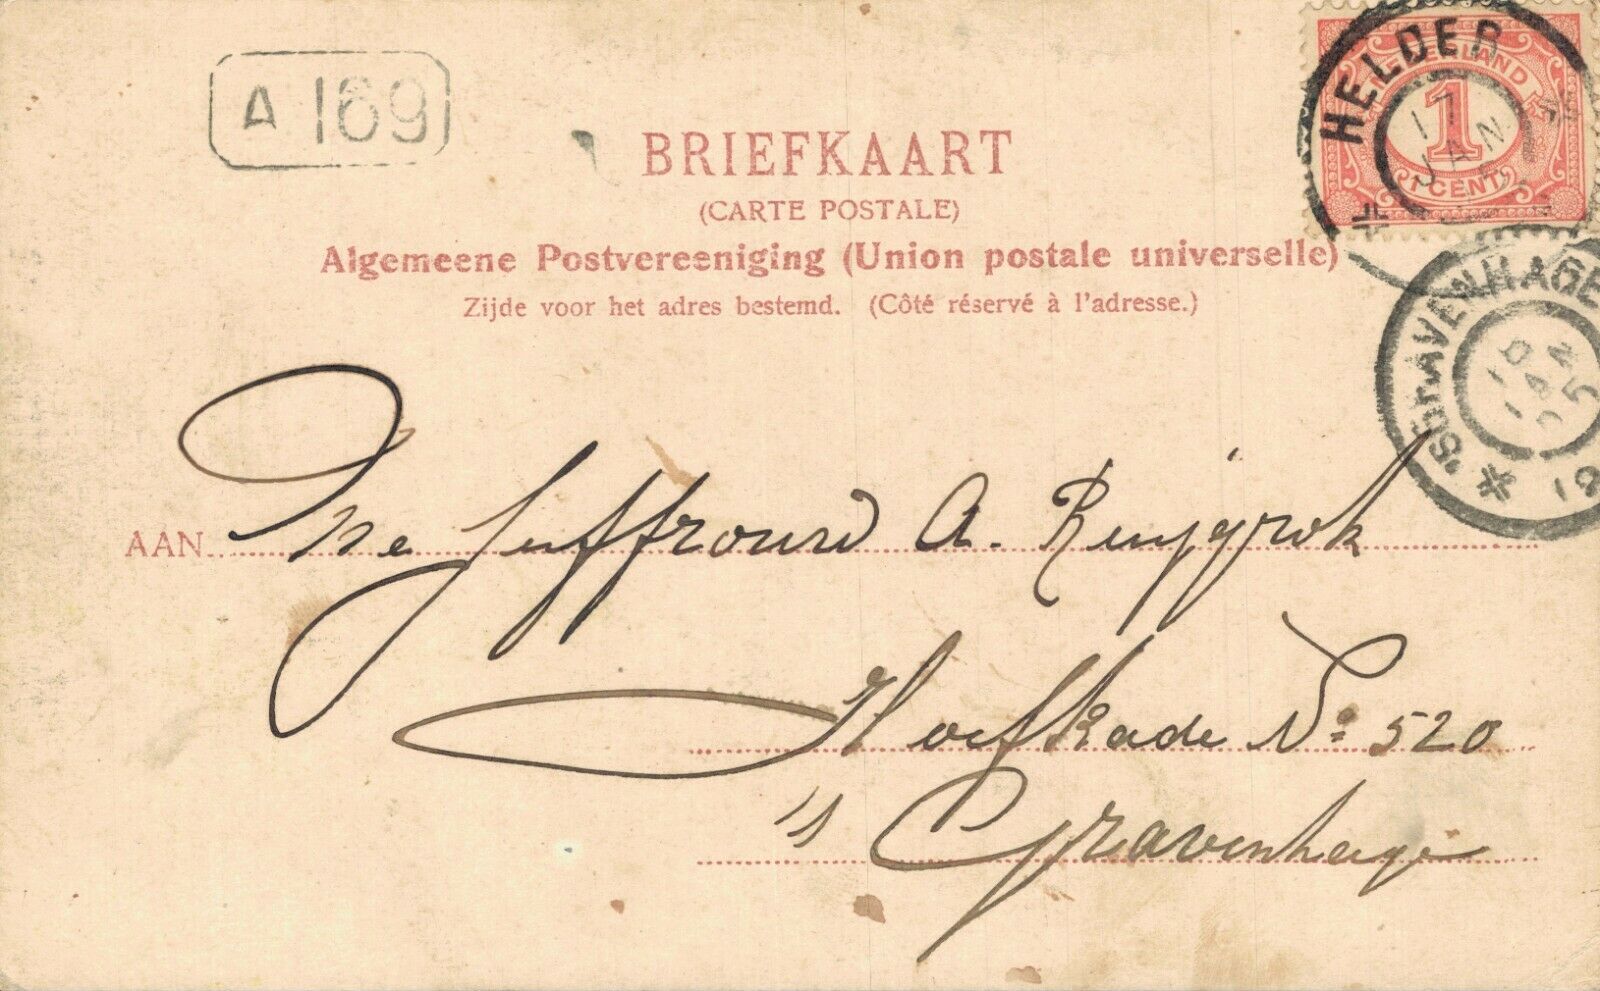 A 169
BRIEFKAART
(CARTE POSTALE)
Algemeene Postvereeniging (Union postale universelle)
Zijde voor het adres bestemd. (Côté réservé à l'adresse.)
HELDER
17 JAN
NEDERLAND
1
1 CENT
'S GRAVENHAGE
AAN Juffrouw A. Ruijgrok
Hoefkade No 520
's Gravenhage